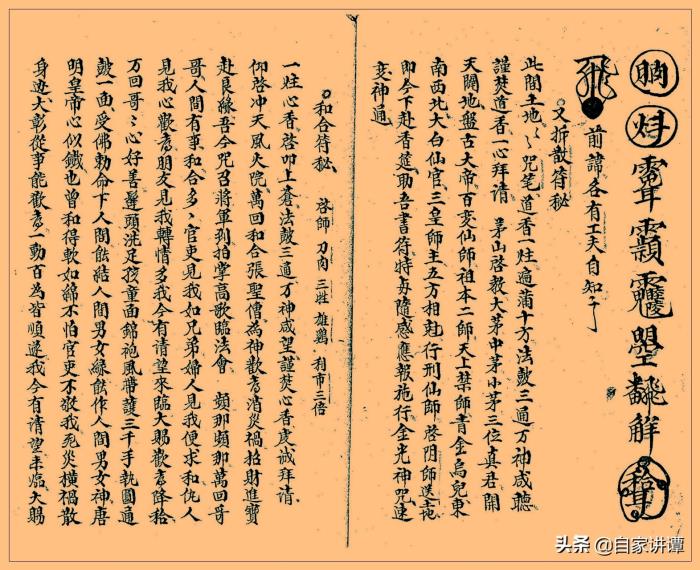 前諱各有工夫自知
又拆散符秘
此間土地々々咒笔道香一炷遍蒲十方法鼓三通万神咸聴
謹焚道香一心拜請　茅山啓教大茅中茅小茅三位真君開
天闢地盤古大帝百变仙師祖本二師天上禁師青金烏兒東
南西北大白仙官三皇師主五方相赴行刑仙師啓阴師送土地
即今下赴香筵助吾書符特毎隨感應報施行金光神咒速
变神通
和合符秘　啓師　刀肉　三牲　雄鷄　利市三倍
一炷心香啓叩上蒼法鼓三通万神咸望謹焚心香虔诚拜請
仰啓冲天風火院萬回和合張聖僧為神歡喜消災禍招財進寶
赴良緣吾今咒召將軍到拍掌高歌臨法會　頻那頻那萬回哥
哥人間有事和合多官吏見我如兄弟婦人見我便求和仇人
見我心歡喜朋友見我轉情多我今有請望來臨大賜歡喜降
万回哥々心好善蓬頭洗足孩童面錦袍風帶護三千手執圓通
鼓一面受佛勅命下人間能結人間男女緣能作人間男女神唐
明皇帝心似鐵也曾和得軟如綿不怕官吏不敬我死災橫禍散
身边大彰從事能歡喜一動百為皆順遂我今有請望来臨大賜
头条 @自家讲谭